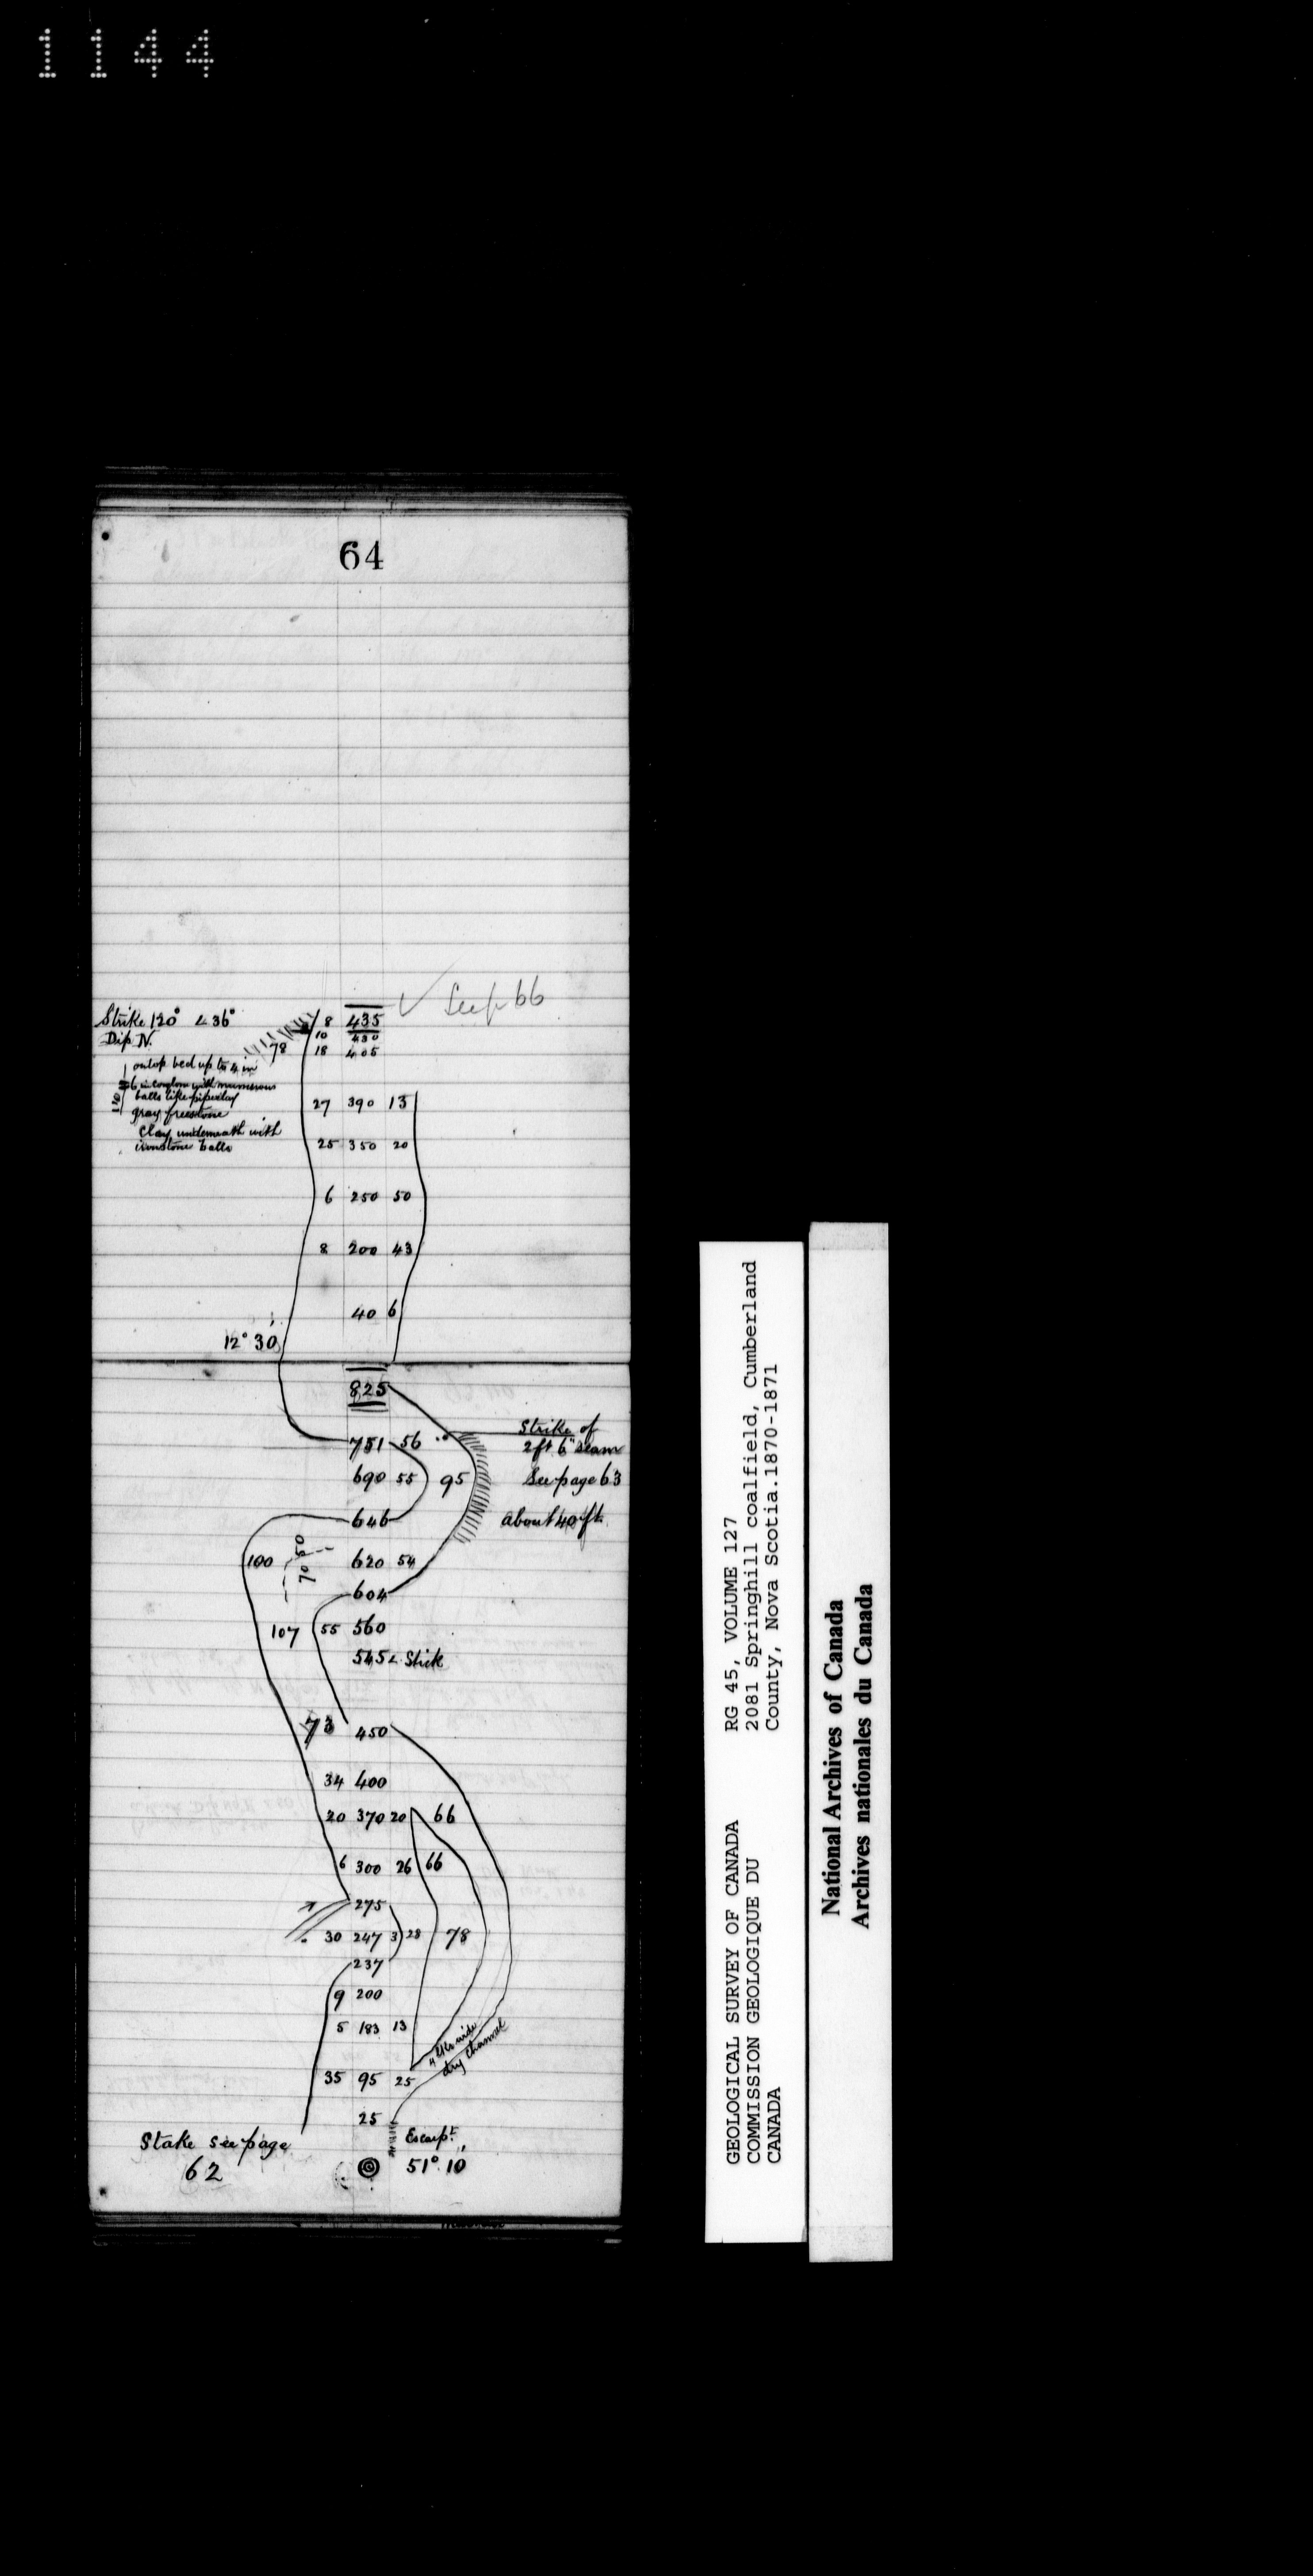 1144
64
✓ See p 66
Strike 120° ∠ 36° 8 435
Dip N. 10 430
78 18 405
on top bed up to 4 in
6 in conglom with numerous
balls like pipeclay
gray freestone
Clay underneath with
ironstone balls
110
27 390 13
25 350 20
6 250 50
8 200 43
40 6
12° 30'
825
Strike of
751 56 2 ft 6" seam
690 55 95 See page 63
646 about 40 ft
100 70 50 620 54
604
107 55 560
545 ∠ Stick
73 450
34 400
20 370 20 66
6 300 26 66
275
30 247 3 28 78
237
9 200
5 183 13
4 lks wide
dry channel
35 95 25
25
Stake see page Escarpt.
62 51° 10'
RG 45, VOLUME 127
2081 Springhill coalfield, Cumberland
County, Nova Scotia.1870-1871
GEOLOGICAL SURVEY OF CANADA
COMMISSION GEOLOGIQUE DU
CANADA
National Archives of Canada
Archives nationales du Canada